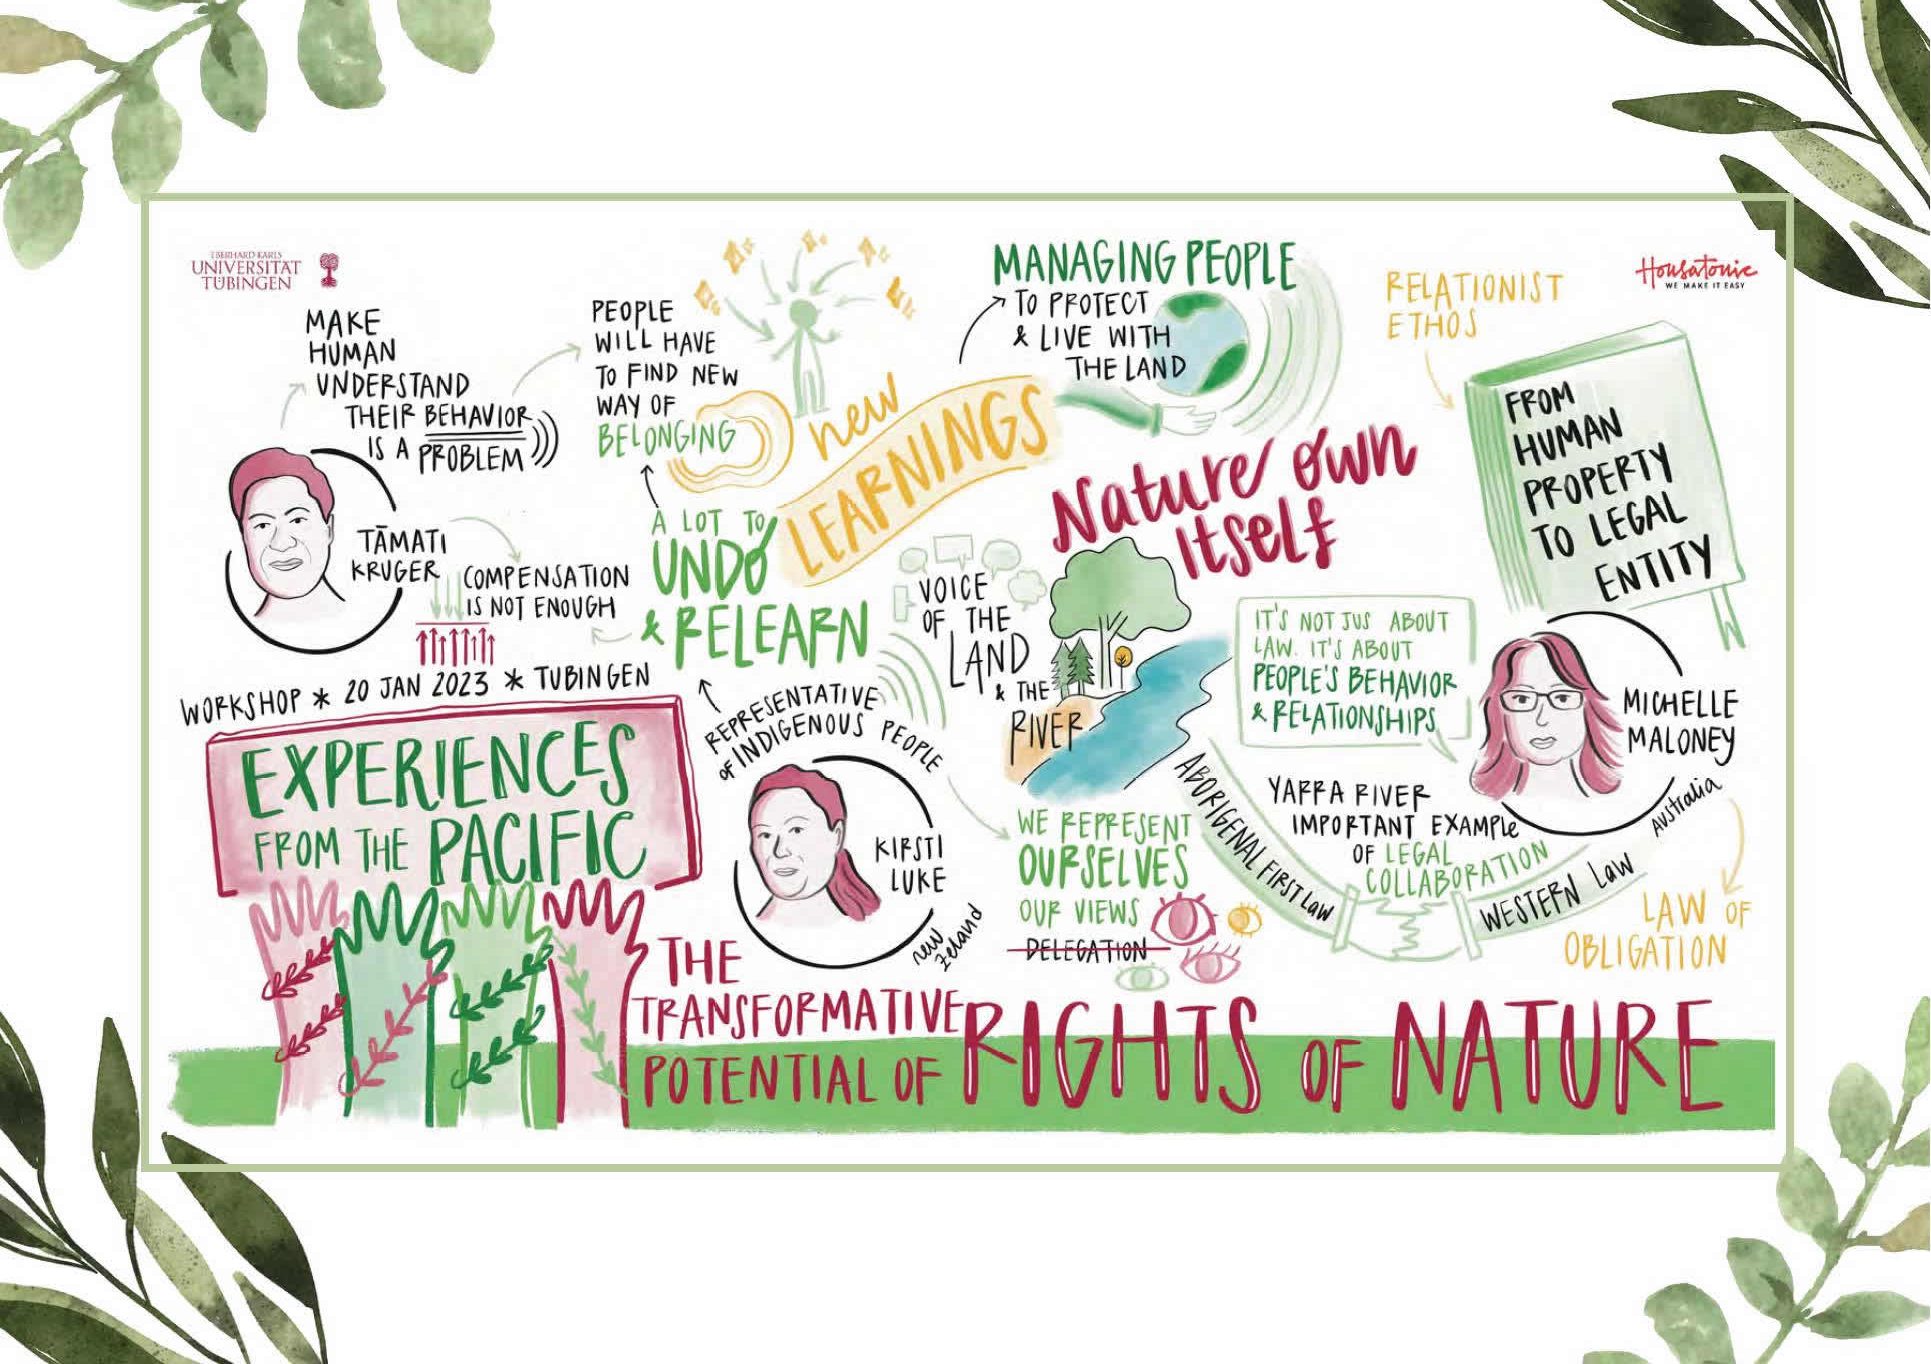 EBERHARD KARLS
UNIVERSITÄT
TÜBINGEN
Housatonic
WE MAKE IT EASY
MAKE
HUMAN
UNDERSTAND
THEIR BEHAVIOR
IS A PROBLEM
TĀMATI
KRUGER
COMPENSATION
IS NOT ENOUGH
PEOPLE
WILL HAVE
TO FIND NEW
WAY OF
BELONGING
A LOT TO
UNDO
& RELEARN
new
LEARNINGS
MANAGING PEOPLE
TO PROTECT
& LIVE WITH
THE LAND
Nature own
Itself
RELATIONIST
ETHOS
FROM
HUMAN
PROPERTY
TO LEGAL
ENTITY
VOICE
OF THE
LAND
& THE
RIVER
IT'S NOT JUS ABOUT
LAW. IT'S ABOUT
PEOPLE'S BEHAVIOR
& RELATIONSHIPS
MICHELLE
MALONEY
AUSTRALIA
WORKSHOP * 20 JAN 2023 * TUBINGEN
EXPERIENCES
FROM THE PACIFIC
REPRESENTATIVE
OF INDIGENOUS PEOPLE
KIRSTI
LUKE
NEW
ZELAND
WE REPRESENT
OURSELVES
OUR VIEWS
DELEGATION
YARRA RIVER
IMPORTANT EXAMPLE
OF LEGAL
COLLABORATION
ABORIGENAL FIRST LAW
WESTERN LAW
LAW OF
OBLIGATION
THE
TRANSFORMATIVE
POTENTIAL OF RIGHTS OF NATURE